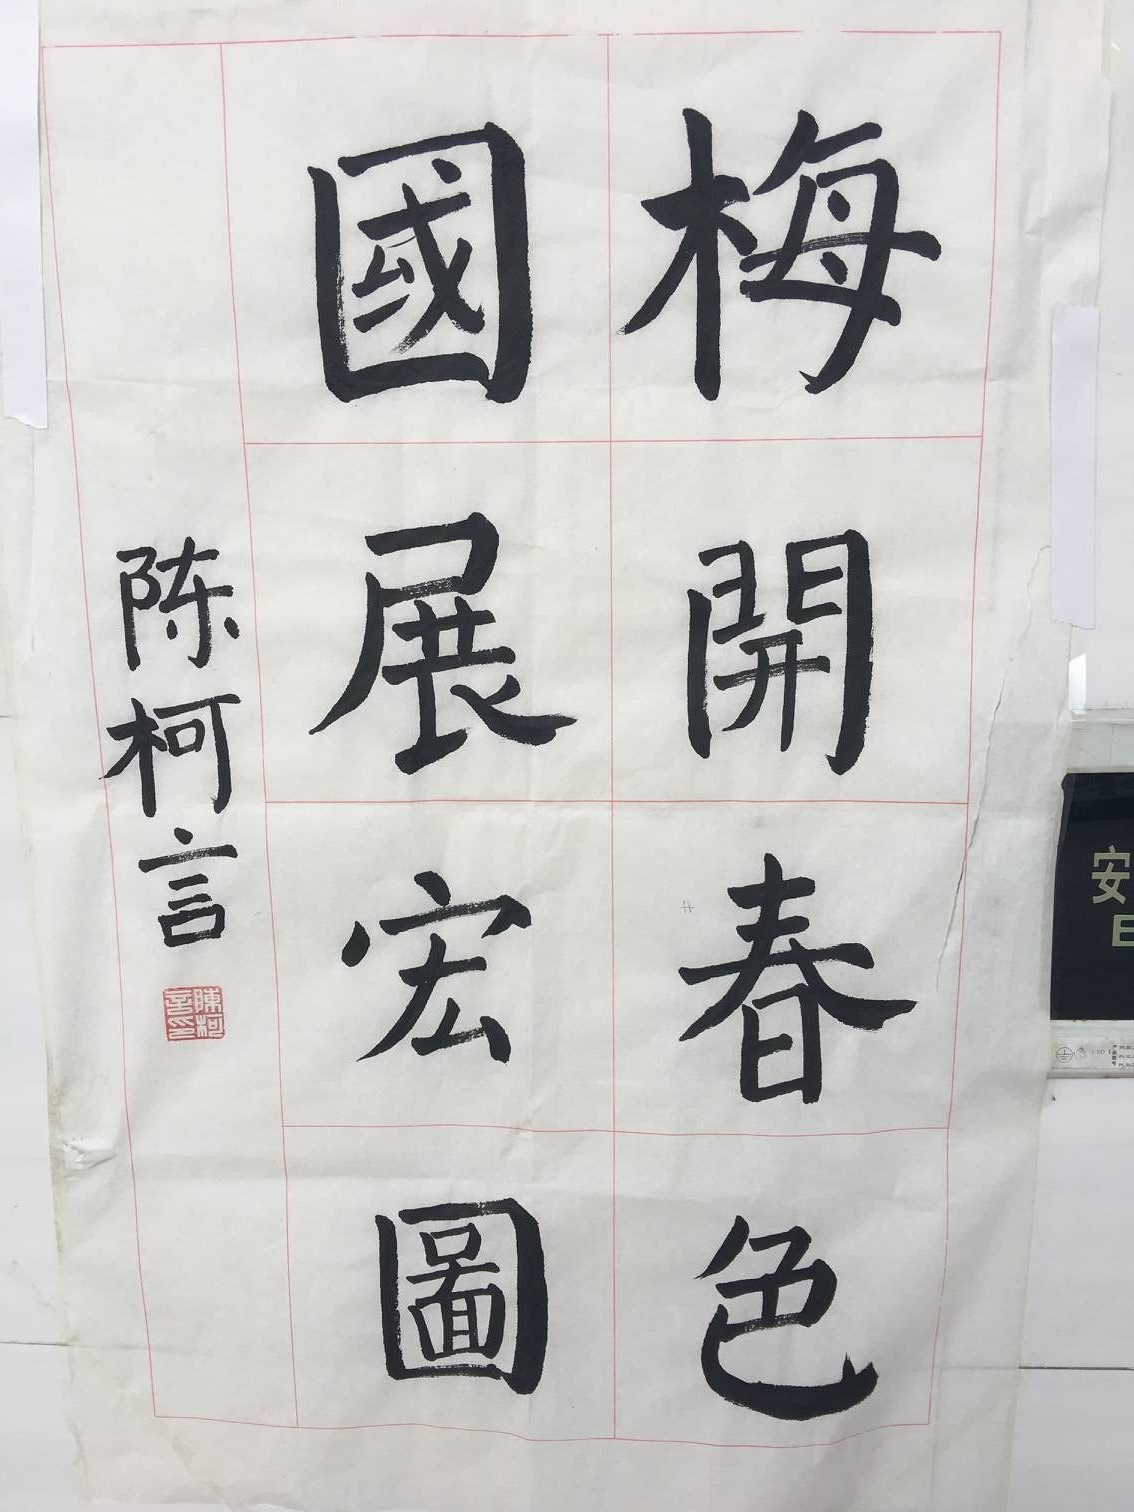 梅開春色
國展宏圖
陈柯言
陳柯言印
安
日